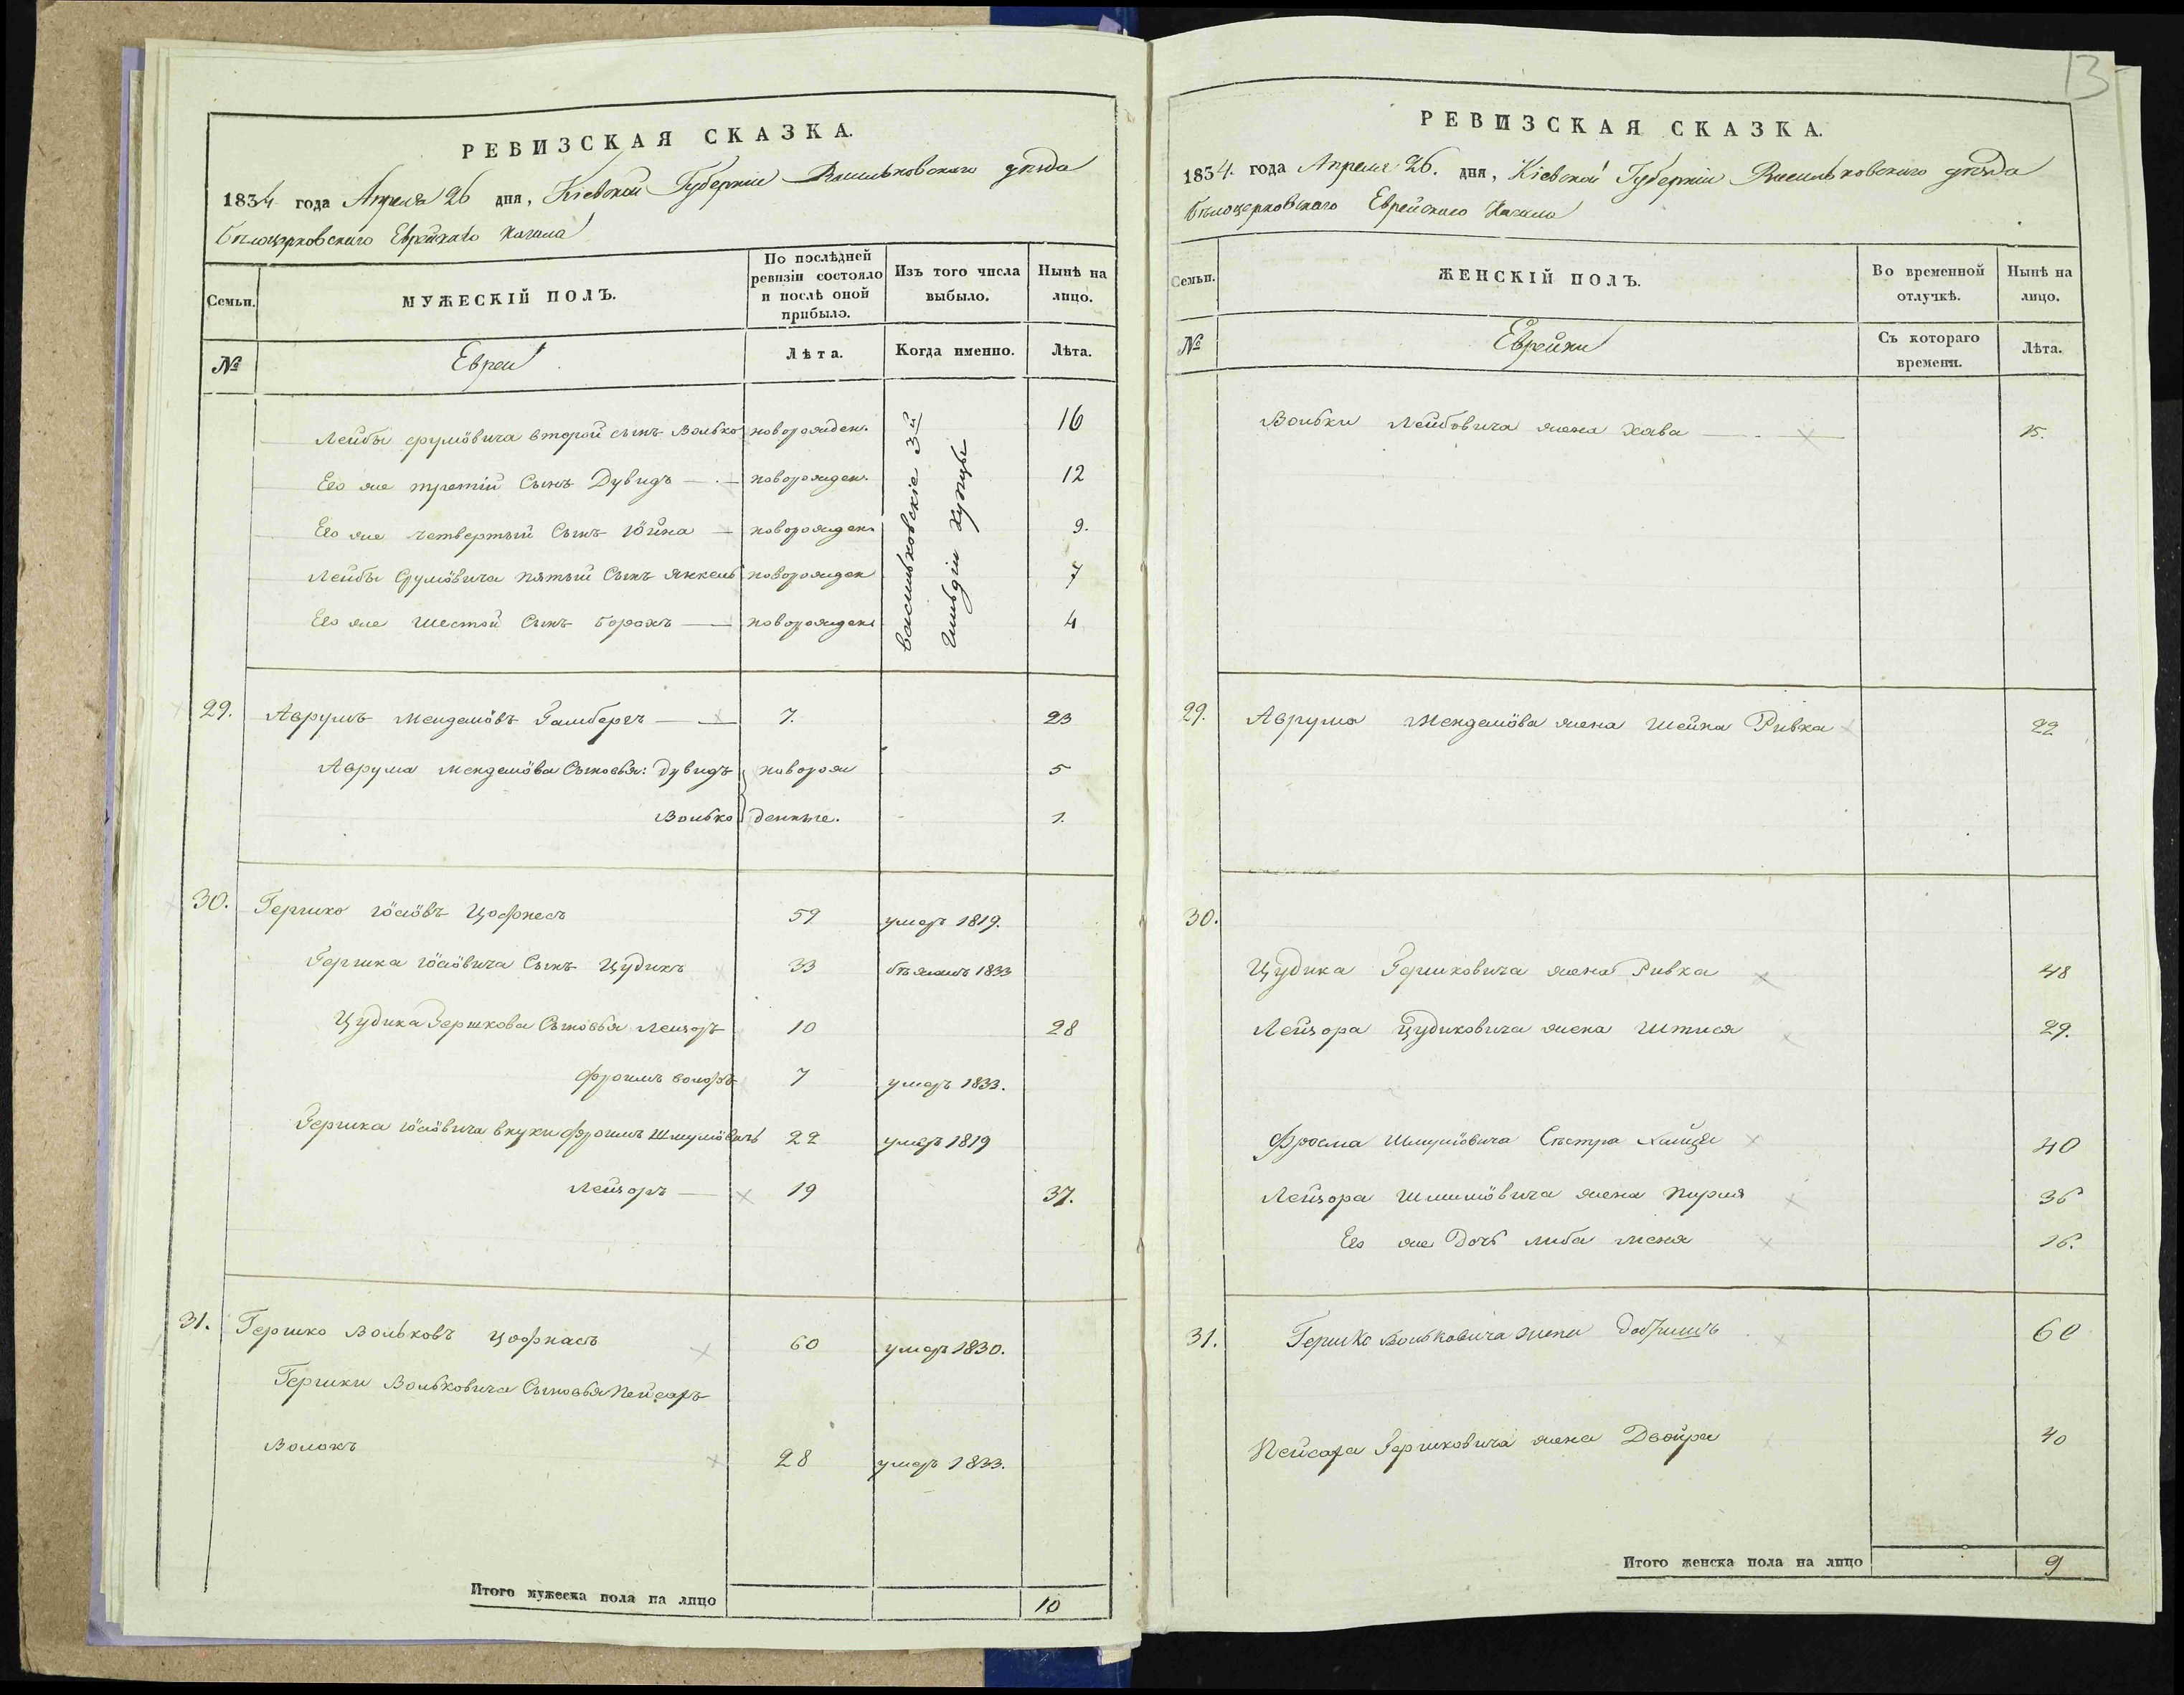 РЕВИЗСКАЯ СКАЗКА.
1834 года Апреля 26 дня, Кіевской Губерніи Васильковскаго уѣзда
Бѣлоцерковскаго Еврейскаго Кагала
Семьи.
МУЖЕСКІЙ ПОЛЪ.
По послѣдней ревизіи состояло и послѣ оной прибыло.
Изъ того числа выбыло.
Нынѣ на лицо.
№
Евреи
Лѣта.
Когда именно.
Лѣта.
Лейбы Срулёвича второй сынъ Волько новорожден. 16
Его же третій Сынъ Дувидъ новорожден. 12
Его же четвертый Сынъ Іойна новорожден. 9.
Лейбы Срулёвича пятый Сынъ Янкель новорожден 7
Его же шестой Сынъ Борохъ новорожден 4
Васильковскіе 3й
Гильдіи купцы
29. Аврумъ Менделёвъ Гамбергъ 7. 23
Аврума Менделёва Сыновья: Дувидъ новорож 5
Волько денные. 1.
30. Гершко Іосіовъ Цофнасъ 59 умеръ 1819.
Гершка Іосіовича Сынъ Цудикъ 33 бѣжалъ 1833
Цудика Гершкова Сыновья Лейзоръ 10 28
Фроимъ 7 умеръ 1833.
Гершка Іосіовича внуки Фроимъ Шмулёвичъ 22 умеръ 1819
Лейзоръ 19 37.
31. Гершко Вольковъ Цофнасъ 60 умеръ 1830.
Гершки Вольковича Сыновья Пейсахъ
Волохъ 28 умеръ 1833.
Итого мужеска пола на лицо 10
13
РЕВИЗСКАЯ СКАЗКА.
1834. года Апреля 26. дня, Кіевской Губерніи Васильковскаго уѣзда
Бѣлоцерковскаго Еврейскаго Кагала
Семьи.
ЖЕНСКІЙ ПОЛЪ.
Во временной отлучкѣ.
Нынѣ на лицо.
№
Еврейки
Съ котораго времени.
Лѣта.
Вольки Лейбовича жена Хава 15.
29. Аврума Менделёва жена Шейна Ривка 22
30.
Цудика Гершковича жена Ривка 48
Лейзора Цудиковича жена 29.
Фроима Шмулёвича Сестра Хайца 40
Лейзора Шмулёвича жена Пирля 36
Его же Дочь Либа Меня 16.
31. Гершко Вольковича жена 60
Пейсаха Гершковича жена Двойра 40
Итого женска пола на лицо 9